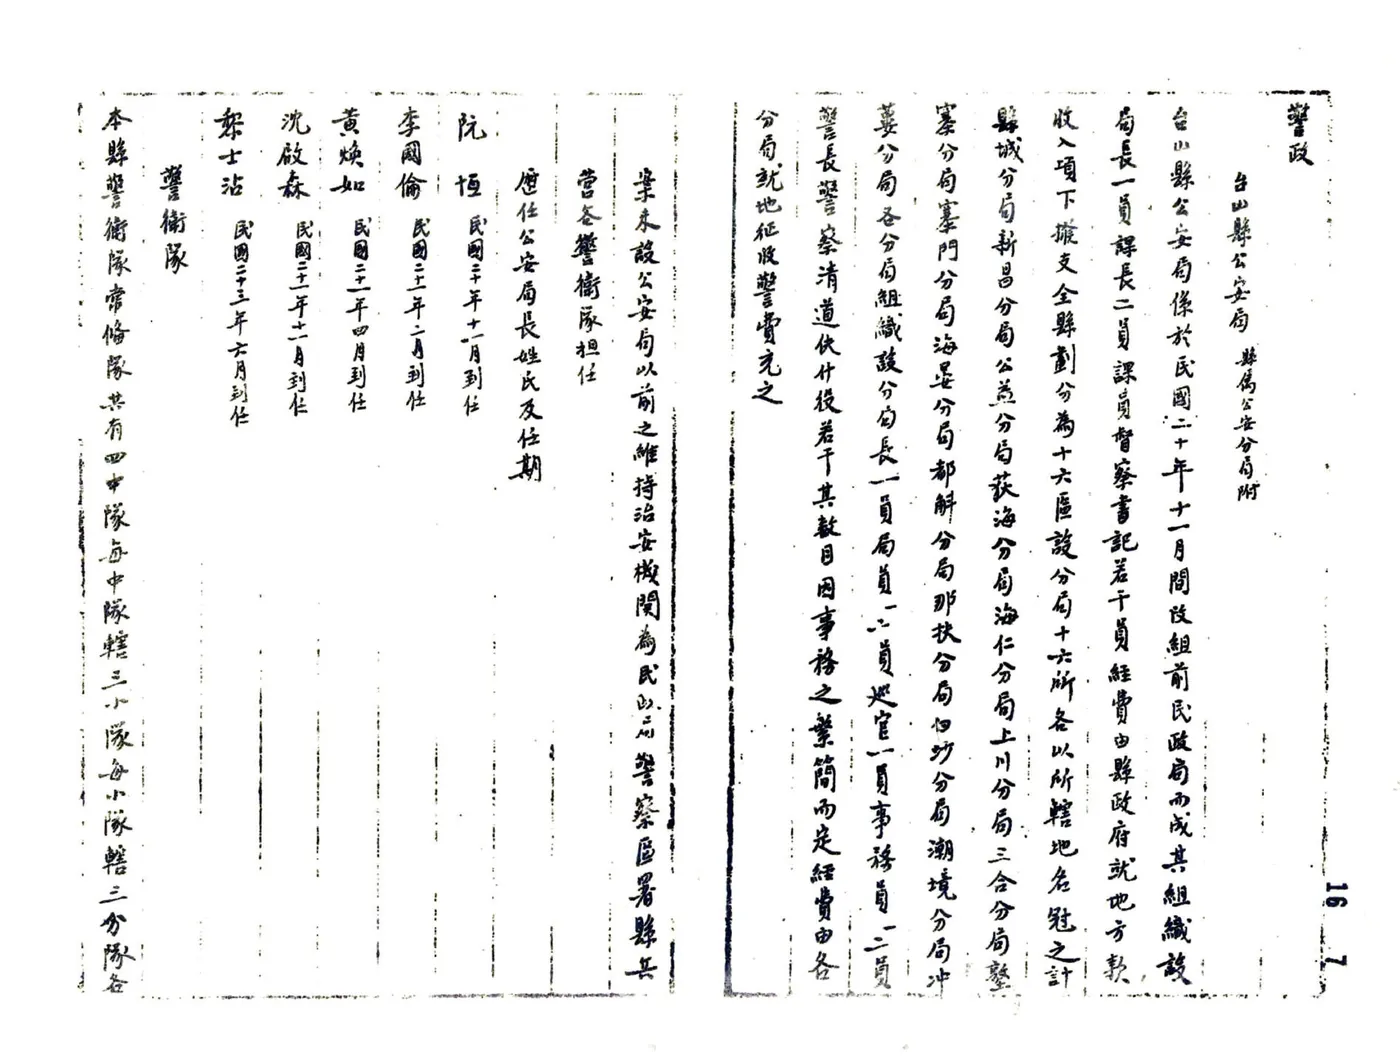 警政
台山縣公安局 縣屬公安分局附
台山縣公安局係於民國二十年十一月間改組前民政局而成其組織設
局長一員課長二員課員督察書記若干員經費由縣政府就地方款
收入項下撥支全縣劃分為十六區設分局十六所各以所轄地名冠之計
縣城分局新昌分局公益分局荻海分局海仁分局上川分局三合分局墪
寨分局寨門分局海晏分局都斛分局那扶分局白沙分局潮境分局冲
蔞分局各分局組織設分局長一員局員一二員巡官一員事務員一二員
警長警察清道伕什役若干其數目因事務之繁簡而定經費由各
分局就地征收警費充之
案未設公安局以前之維持治安機関為民政局警察區署縣兵
營各警衛隊担任
歷任公安局長姓氏及任期
阮恒 民國二十年十一月到任
李國倫 民國二十一年二月到任
黄煥如 民國二十一年四月到任
沈啟森 民國二十一年十一月到任
黎士沾 民國二十三年六月到任
警衛隊
本縣警衛隊常備隊共有四中隊每中隊轄三小隊每小隊轄三分隊各
16 7